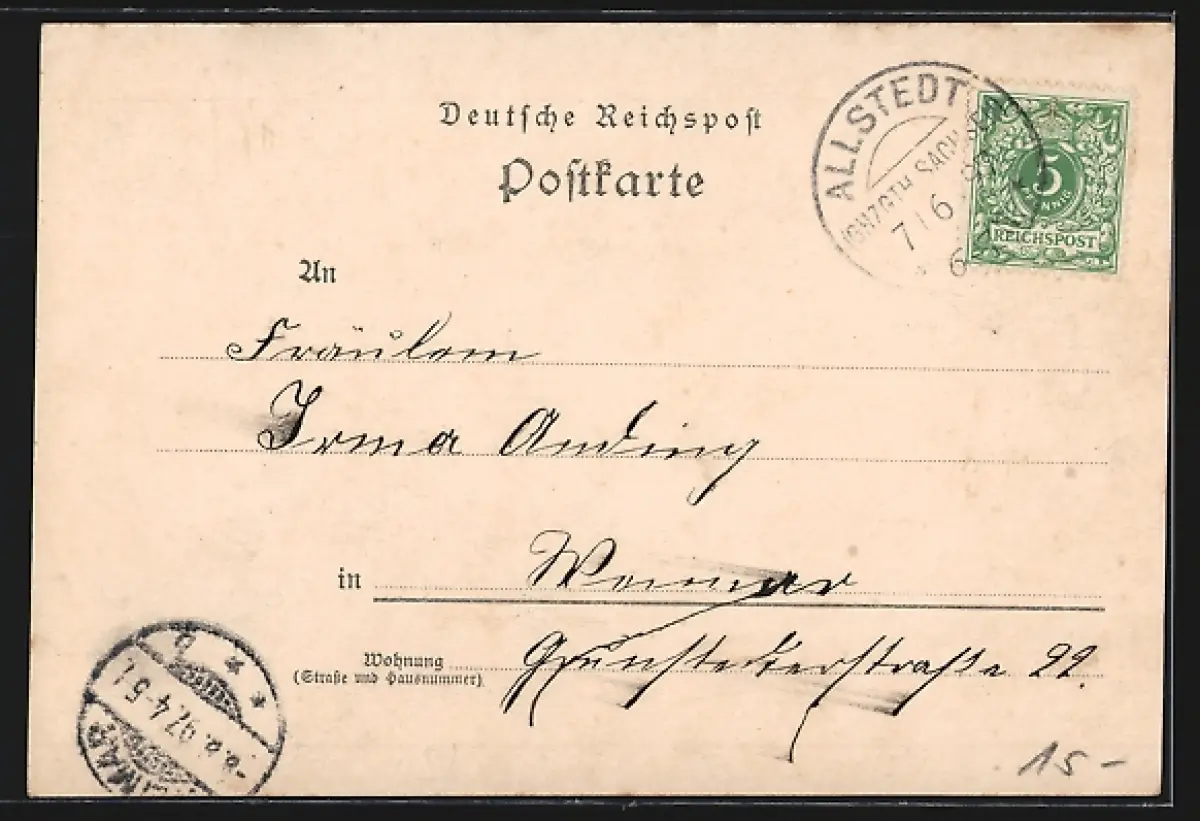 Deutsche Reichspost
Postkarte
ALLSTEDT
(GHZGTH. SACHSEN)
7 6 97
6
5
PFENNIG
REICHSPOST
An
Fräulein
Irma Anding
in Weimar
Wohnung Grunstedterstraße 22.
(Straße und Hausnummer)
WEIMAR
8.6.97. 4-5
15 -